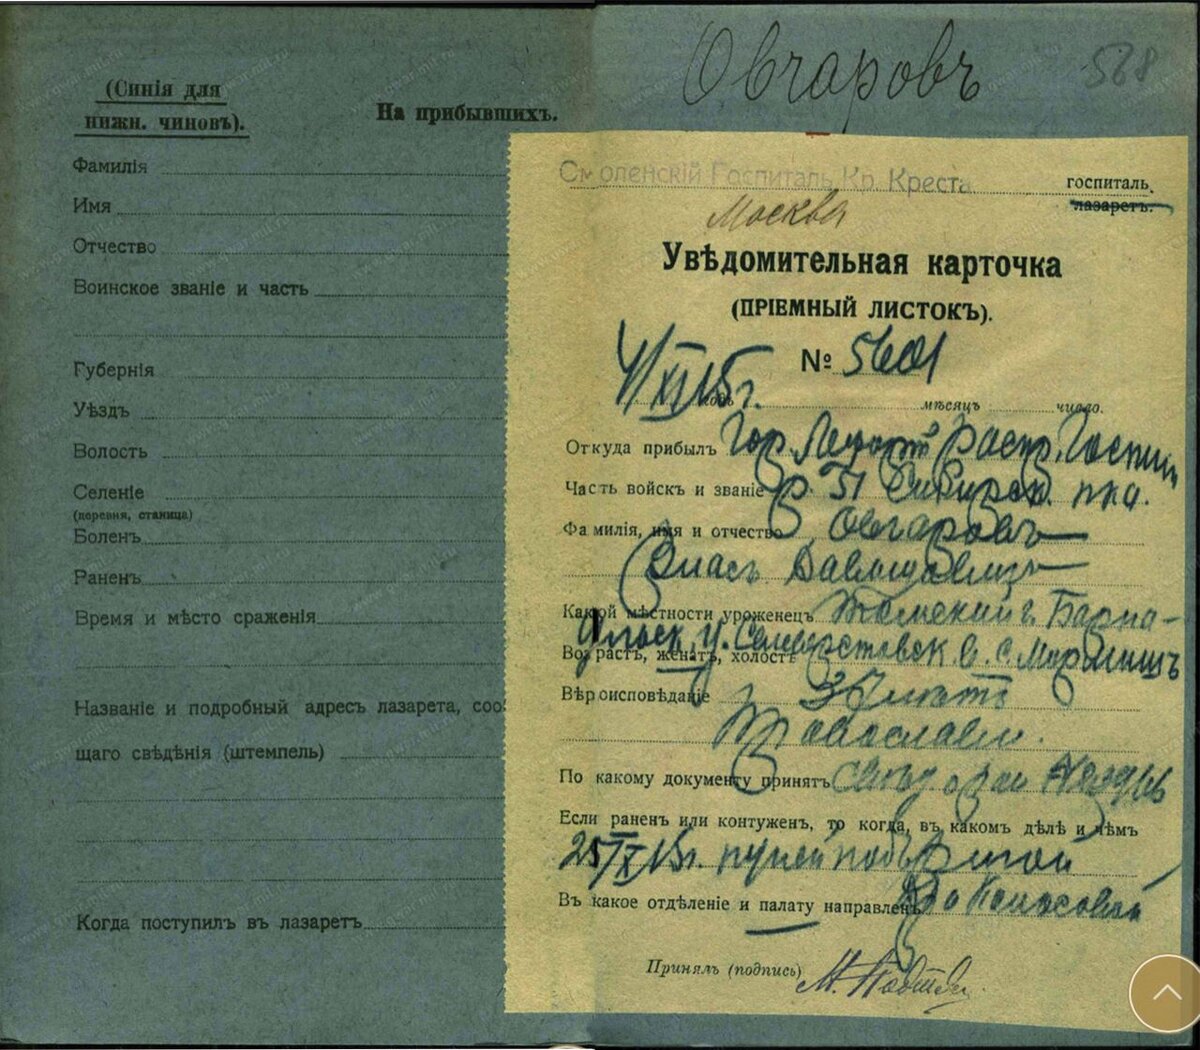 (Синія для
нижн. чиновъ).
На прибывшихъ.
Фамилія
Имя
Отчество
Воинское званіе и часть
Губернія
Уѣздъ
Волость
Селеніе
(деревня, станица)
Боленъ
Раненъ
Время и мѣсто сраженія
Названіе и подробный адресъ лазарета, соо
щаго свѣдѣнія (штемпель)
Когда поступилъ въ лазаретъ
Овчаровъ
568
Смоленскій Госпиталь Кр. Креста
госпиталь.
лазаретъ.
Москва
Увѣдомительная карточка
(ПРІЕМНЫЙ ЛИСТОКЪ).
№ 5601
4/XI 15 г.
мѣсяцъ число.
Откуда прибылъ Гор. распр. Госпит
Часть войскъ и званіе р. 51 Сибирск. п-ка.
Фамилія, имя и отчество Овчаровъ
Власъ Давыдовичъ
Какой мѣстности уроженецъ Томский г. Барна-
ульск. у. в. с.
Возрастъ, женатъ, холостъ
Вѣроисповѣданіе 37 лѣтъ
Православн.
По какому документу принятъ
Если раненъ или контуженъ, то когда, въ какомъ дѣлѣ и чѣмъ
25/X 15 г. пулей подъ Ригой
Въ какое отдѣленіе и палату направленъ
Принялъ (подпись)